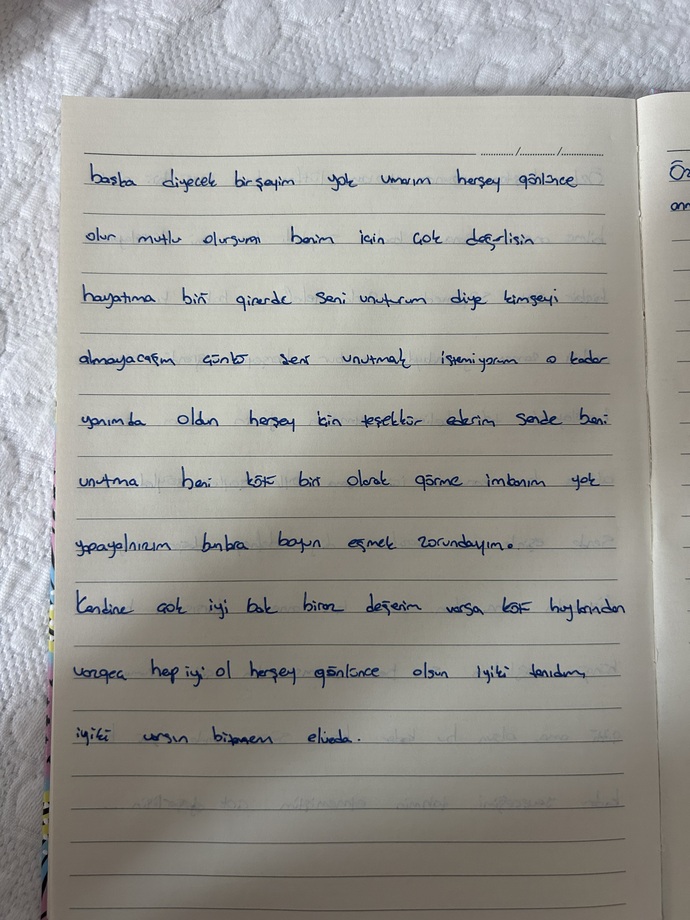 başka diyecek birşeyim yok umarım herşey gönlünce
olur mutlu olursun benim için çok değerlisin
hayatıma biri girerde seni unuturum diye kimseyi
almayacağım çünkü seni unutmak istemiyorum o kadar
yanımda oldun herşey için teşekkür ederim sende beni
unutma beni kötü biri olarak görme imkanım yok
yapayalnızım bunlara boyun eğmek zorundayım.
Kendine çok iyi bak biraz değerim varsa kötü huylarından
vazgeç hep iyi ol herşey gönlünce olsun iyiki tanıdım
iyiki varsın elveda.
Öz